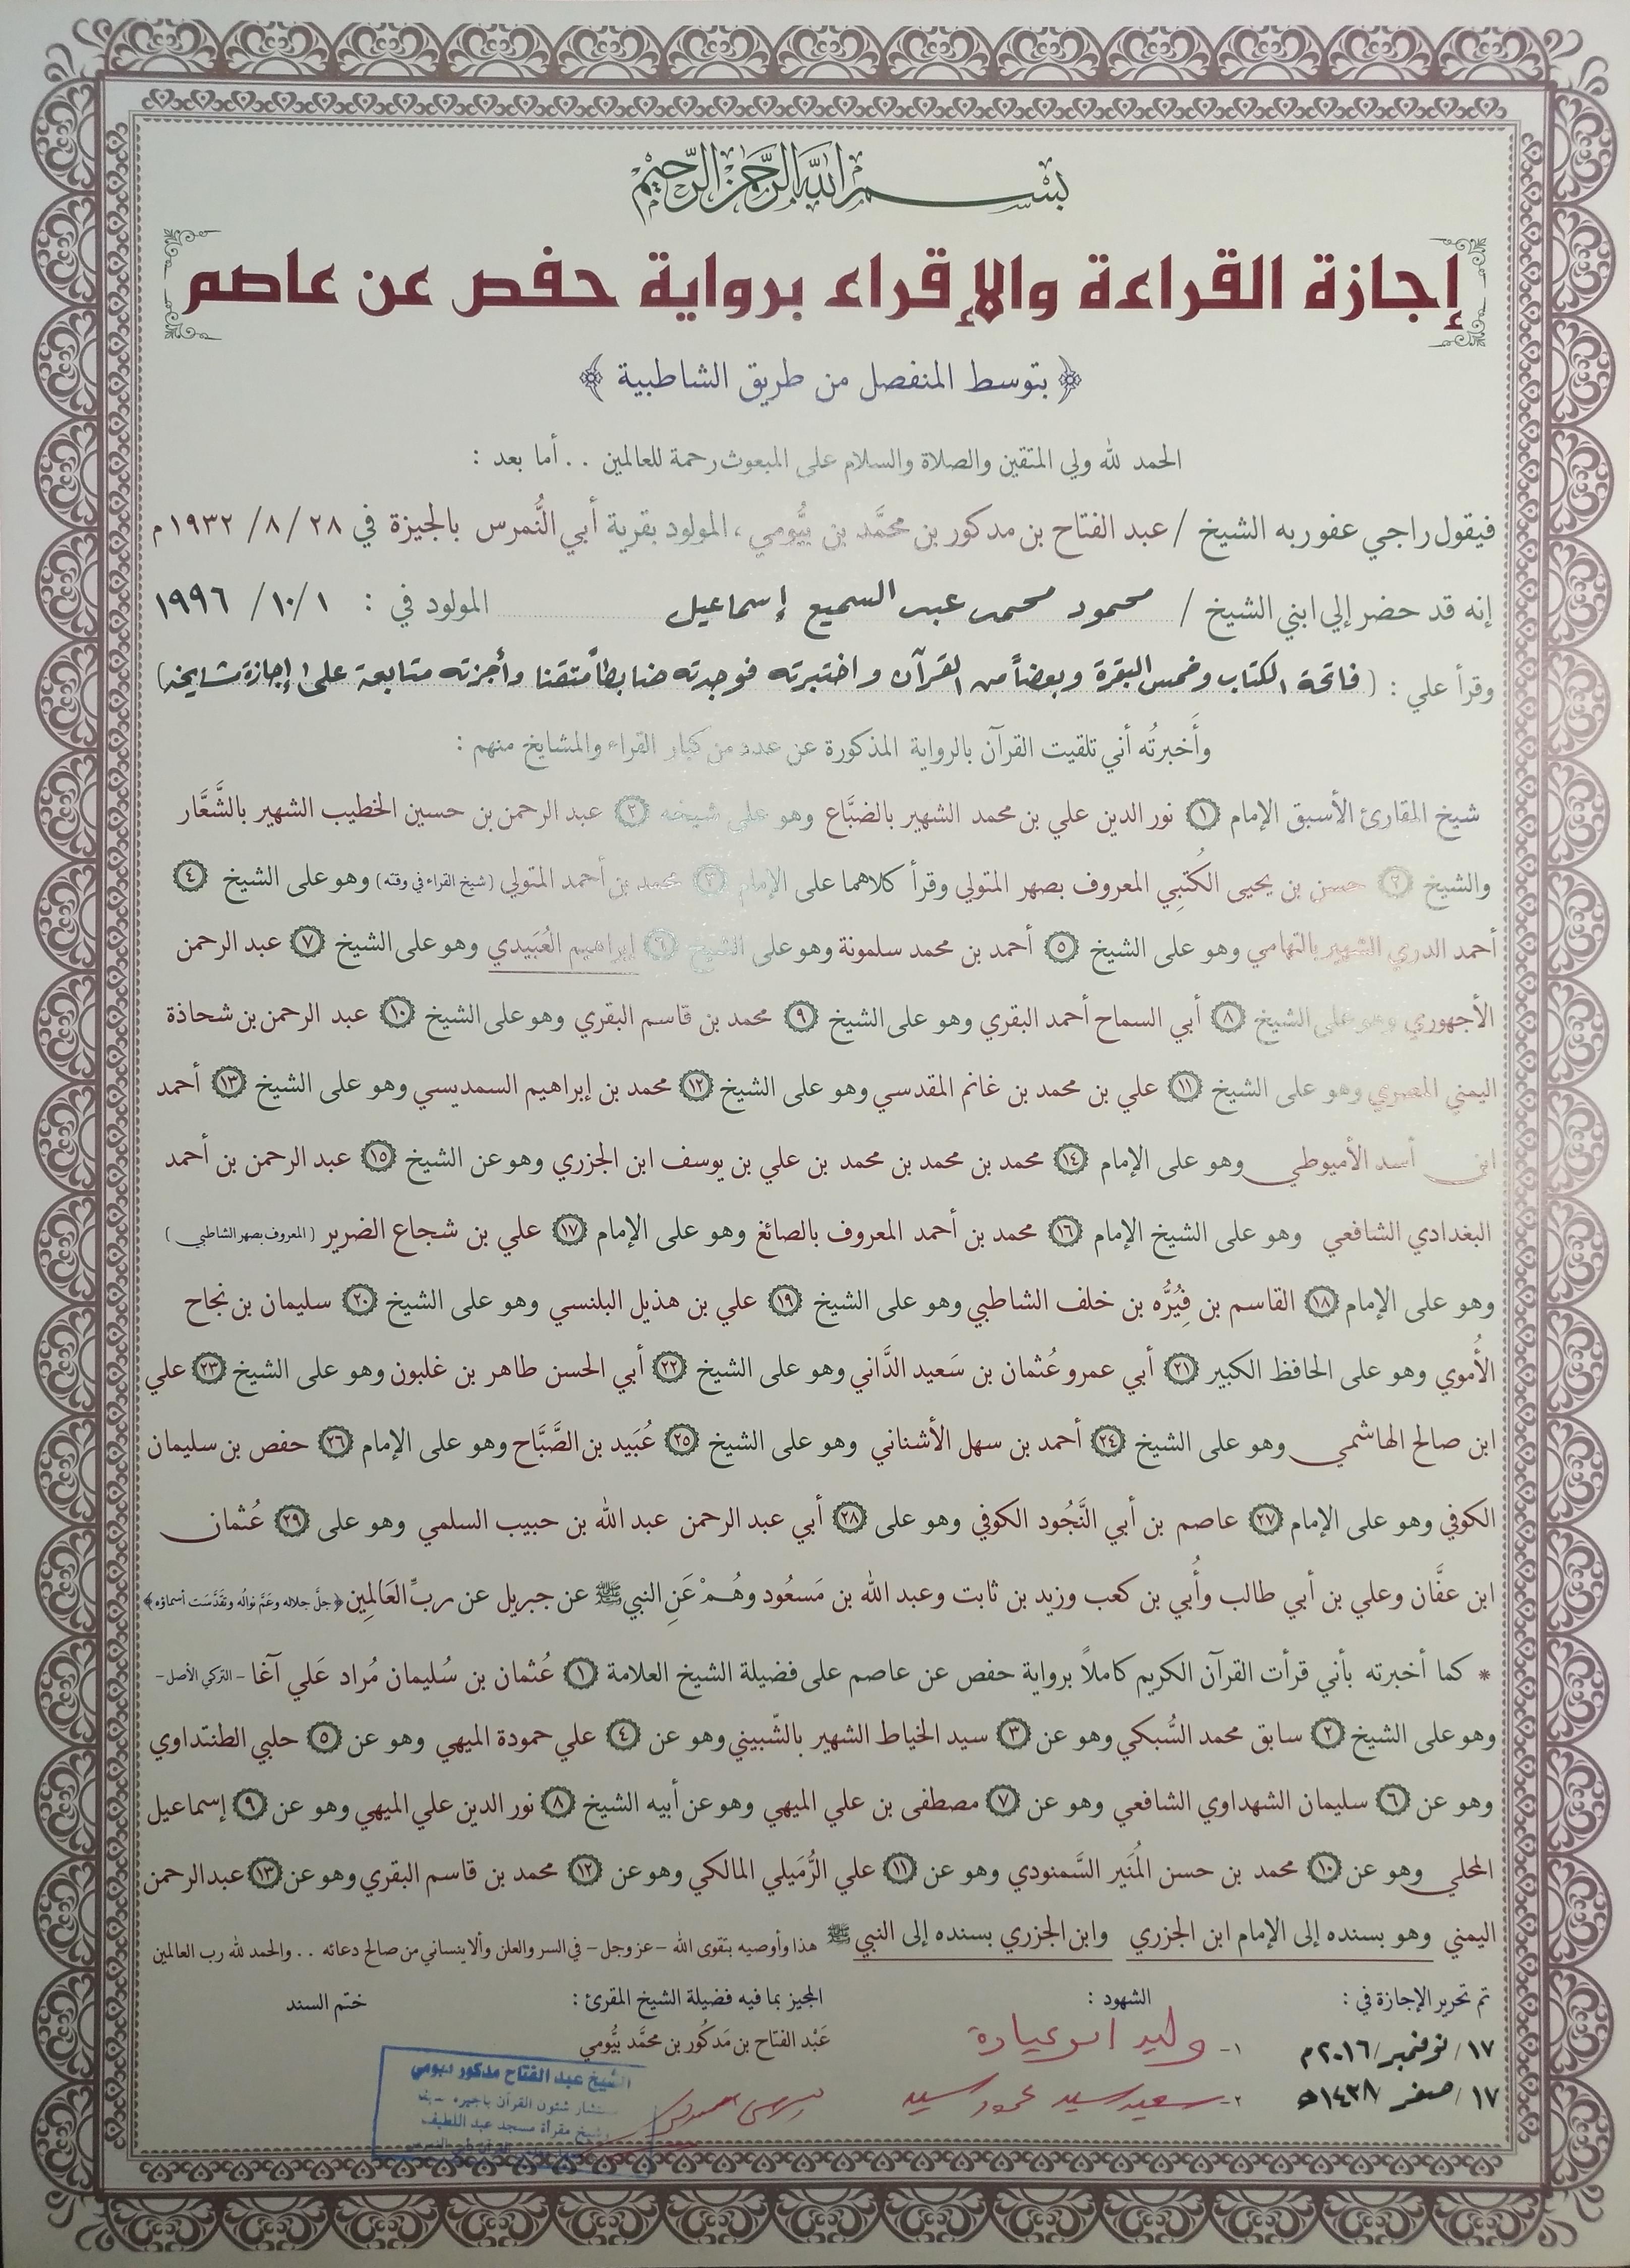 بسم الله الرحمن الرحيم
إجازة القراءة والإقراء برواية حفص عن عاصم
﴿ بتوسط المنفصل من طريق الشاطبية ﴾
الحمد لله ولي المتقين والصلاة والسلام على المبعوث رحمة للعالمين .. أما بعد :
فيقول راجي عفو ربه الشيخ / عبد الفتاح بن مدكور بن محمَّد بن بيُّومي ، المولود بقرية أبي النُّمرس بالجيزة في ٢٨ /٨ /١٩٣٢ م
إنه قد حضر إلي ابني الشيخ / محمود محمد عبد السميع إسماعيل المولود في : ١ /١٠ /١٩٩٦
وقرأ علي : ( فاتحة الكتاب وخمس البقرة وبعضاً من القرآن واختبرته فوجدته ضابطاً متقنا وأجزته متابعة على إجازة مشايخه)
وأَخبرتُه أني تلقيت القرآن بالرواية المذكورة عن عدد من كبار القراء والمشايخ منهم :
شيخ المقارئ الأسبق الإمام ١ نور الدين علي بن محمد الشهير بالضبَّاع وهو على شيخه ٢ عبد الرحمن بن حسين الخطيب الشهير بالشَّعَّار
والشيخ ٢ حسن بن يحيى الكُتبِي المعروف بصهر المتولي وقرأ كلاهما على الإمام ٣ محمد بن أحمد المتولي (شيخ القراء في وقته) وهو على الشيخ ٤
أحمد الدري الشهير بالتهامي وهو على الشيخ ٥ أحمد بن محمد سلمونة وهو على الشيخ ٦ إبراهيم العُبَيدي وهو على الشيخ ٧ عبد الرحمن
الأجهوري وهو على الشيخ ٨ أبي السماح أحمد البقري وهو على الشيخ ٩ محمد بن قاسم البقري وهو على الشيخ ١٠ عبد الرحمن بن شحاذة
اليمني المصري وهو على الشيخ ١١ علي بن محمد بن غانم المقدسي وهو على الشيخ ١٢ محمد بن إبراهيم السمديسي وهو على الشيخ ١٣ أحمد
ابن أسد الأميوطي وهو على الإمام ١٤ محمد بن محمد بن محمد بن علي بن يوسف ابن الجزري وهو عن الشيخ ١٥ عبد الرحمن بن أحمد
البغدادي الشافعي وهو على الشيخ الإمام ١٦ محمد بن أحمد المعروف بالصائغ وهو على الإمام ١٧ علي بن شجاع الضرير (المعروف بصهر الشاطبي)
وهو على الإمام ١٨ القاسم بن فِيُرُّه بن خلف الشاطبي وهو على الشيخ ١٩ علي بن هذيل البلنسي وهو على الشيخ ٢٠ سليمان بن نجاح
الأُموي وهو على الحافظ الكبير ٢١ أبي عمرو عُثمان بن سَعيد الدَّاني وهو على الشيخ ٢٢ أبي الحسن طاهر بن غلبون وهو على الشيخ ٢٣ علي
ابن صالح الهاشمي وهو على الشيخ ٢٤ أحمد بن سهل الأشناني وهو على الشيخ ٢٥ عُبَيد بن الصَّبَّاح وهو على الإمام ٢٦ حفص بن سليمان
الكوفي وهو على الإمام ٢٧ عاصم بن أبي النَّجُود الكوفي وهو على ٢٨ أبي عبد الرحمن عبد الله بن حبيب السلمي وهو على ٢٩ عُثمان
ابن عفَّان وعلي بن أبي طالب وأُبي بن كعب وزيد بن ثابت وعبد الله بن مَسعُود وهُمْ عَنِ النبي ﷺ عن جبريل عن ربِّ العَالمِين ﴿جلَّ جلاله وعَمَّ نوالُه وتقَدَّسَت أسماؤه﴾
* كما أخبرته بأني قرأت القرآن الكريم كاملاً برواية حفص عن عاصم على فضيلة الشيخ العلامة ١ عُثمان بن سُليمان مُراد عَلي آغَا - التركي الأصل -
وهو على الشيخ ٢ سابق محمد السُّبكي وهو عن ٣ سيد الخياط الشهير بالشّبيني وهو عن ٤ علي حمودة الميهي وهو عن ٥ حلبي الطنتداوي
وهو عن ٦ سليمان الشهداوي الشافعي وهو عن ٧ مصطفى بن علي الميهي وهو عن أبيه الشيخ ٨ نور الدين علي الميهي وهو عن ٩ إسماعيل
المحلي وهو عن ١٠ محمد بن حسن المُنَير السَّمنودي وهو عن ١١ علي الرُّمَيلي المالكي وهو عن ١٢ محمد بن قاسم البقري وهو عن ١٣ عبد الرحمن
اليمني وهو بسنده إلى الإمام ابن الجزري وابن الجزري بسنده إلى النبي ﷺ هذا وأوصيه بتقوى الله - عز وجل - في السر والعلن وألا ينساني من صالح دعائه .. والحمد لله رب العالمين
تم تحرير الإجازة في : الشهود : المجيز بما فيه فضيلة الشيخ المقرئ : ختم السند
١٧ / نوفمبر / ٢٠١٦ م ١- وليد أبو عيادة عَبْد الفتاح بن مَدكُور بن محمَّد بيُّومي
١٧ / صفر ١٤٣٨ هـ ٢- سعيد سيد محمود سيد
الشيخ عبد الفتاح مدكور بيومي
مستشار شئون القرآن
وشيخ مقرأة مسجد عبد اللطيف